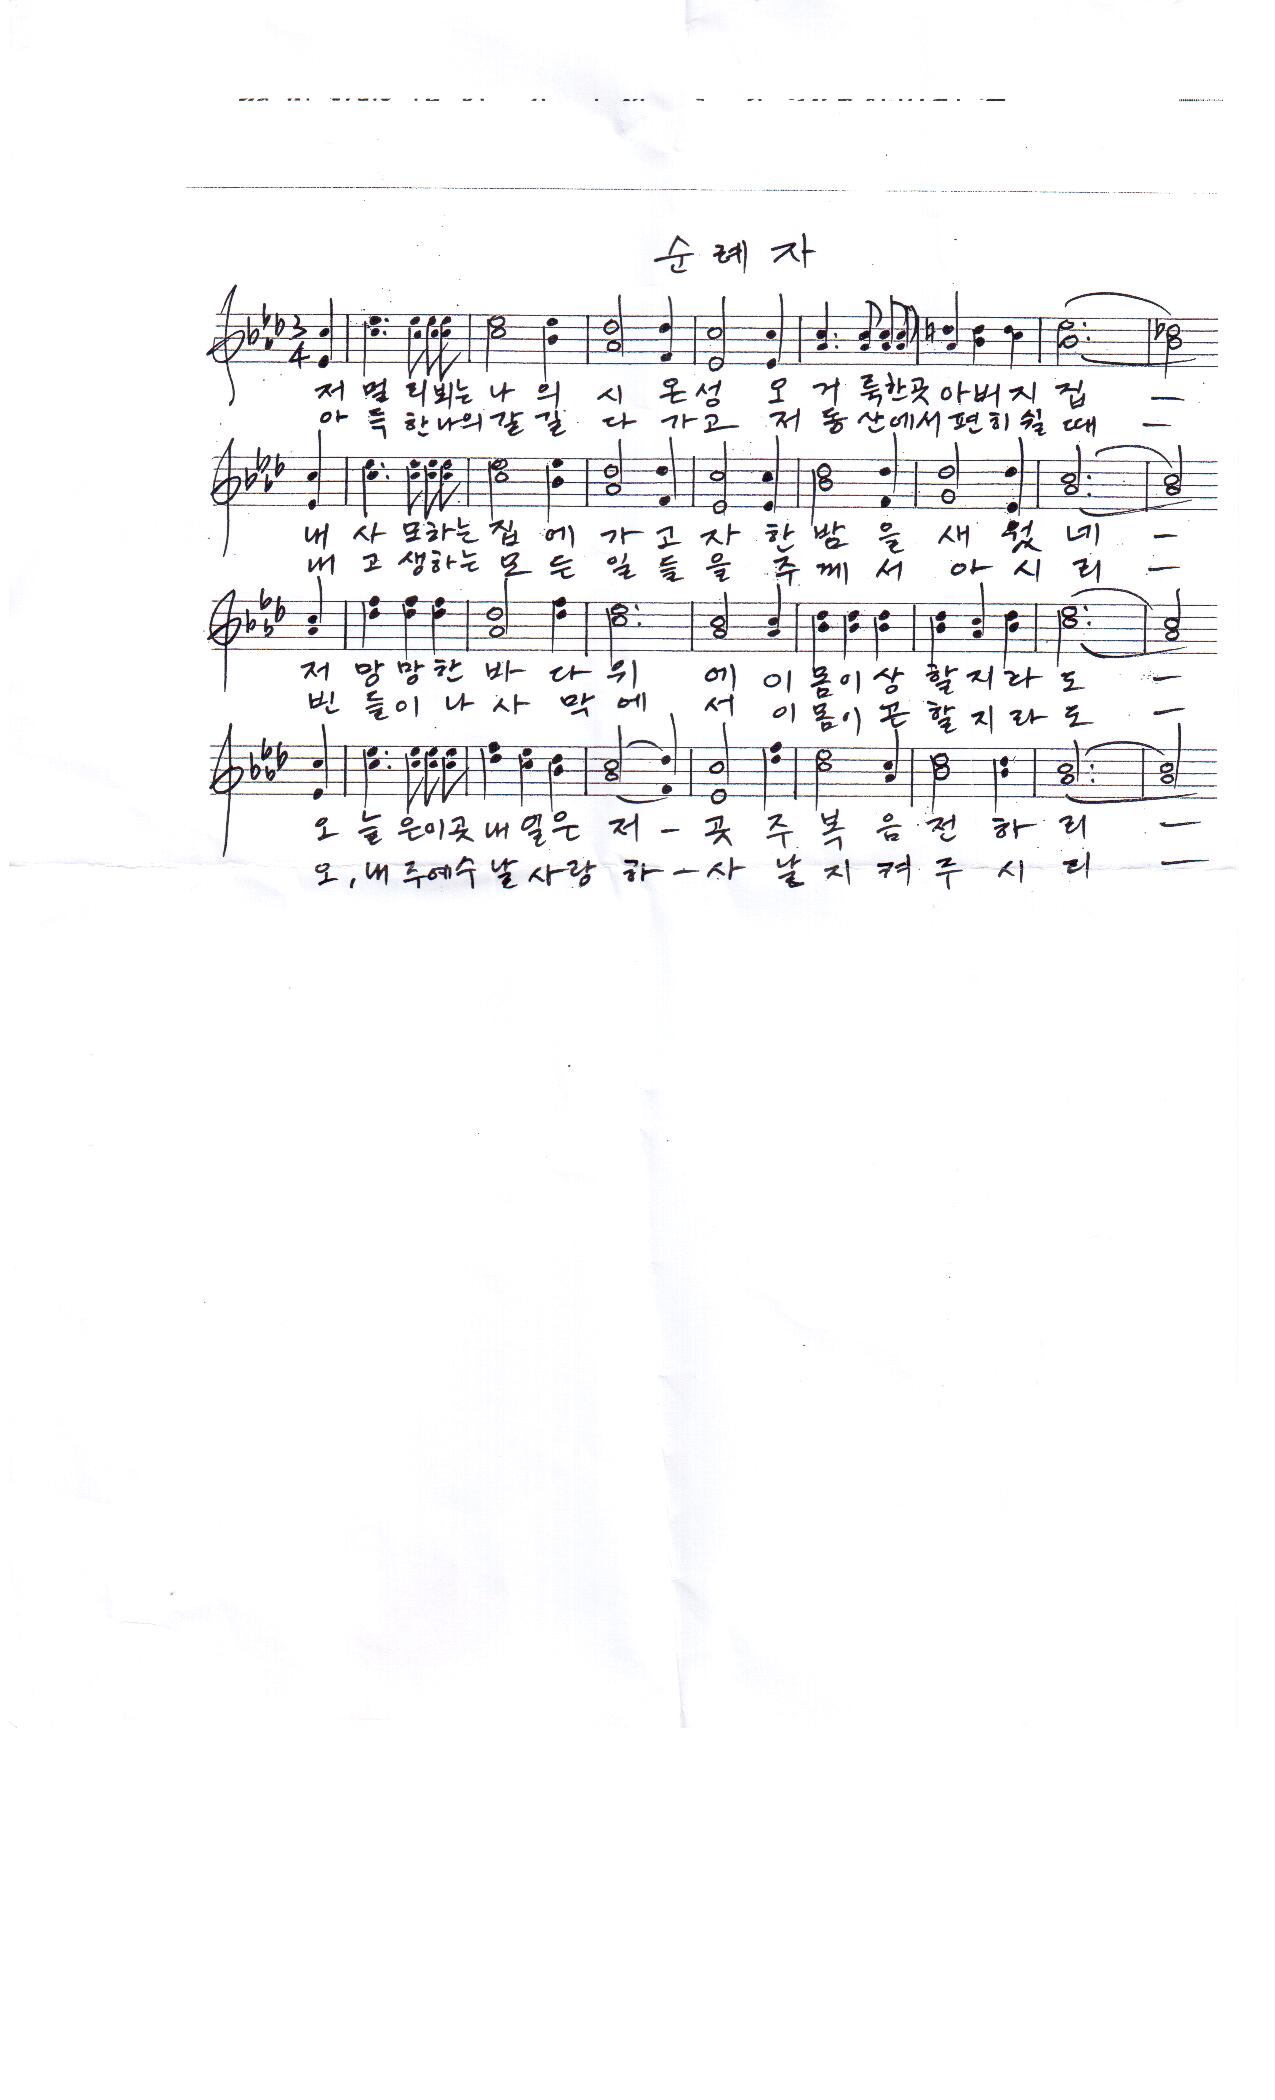 순례자
3
4
저 멀리뵈는 나의 시온성 오 거룩한곳 아버지 집 —
아득한나의갈길 다가고 저 동산에서 편히쉴 때 —
내 사모하는 집에 가고자 한 밤을 새웠네 —
내 고생하는 모든 일들을 주께서 아시리 —
저 망망한 바다위에 이몸이상할지라도 —
빈들이나 사막에서 이몸이곤할지라도 —
오 늘은이곳 내일은 저 - 곳 주복음전하리 —
오, 내 주예수 날사랑하 - 사 날지켜주시리 —